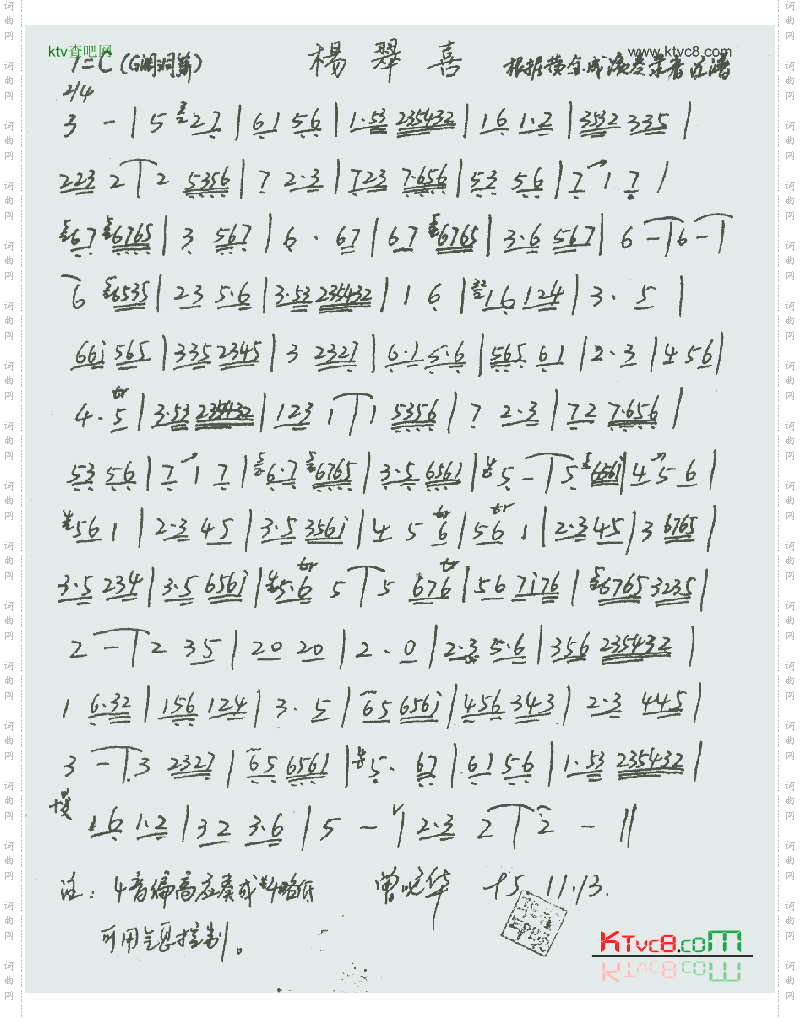 ktv杳吧网
www.ktvc8.com
楊翠喜
1=C (G調洞箫) 根据横
2/4
3 - | 5 27 | 61 56 | 1·53 235432 | 16 1·2 | 3532 335 |
223 2 | 2 5356 | 7 2·3 | 723 7·656 | 53 56 | 7 1 7 |
567 56765 | 3 567 | 6 · 67 | 67 56765 | 3·6 567 | 6 - | 6 - |
6 56535 | 23 5·6 | 3·53 235432 | 1 6 | 16 124 | 3 · 5 |
66i 565 | 335 2345 | 3 2327 | 6·1 5·6 | 565 61 | 2·3 | 4 56 |
tr
4 · 5 | 3·53 235432 | 123 1 | 1 5356 | 7 2·3 | 72 7·656 |
53 56 | 7 1 7 | 56·7 56765 | 3·5 6561 | 5 - | 5 656i | 4 5 6 |
561 | 2·3 45 | 3·5 356i | 4 5 6 | 56 1 | 2·3 45 | 3 6765 |
3·5 234 | 3·5 656i | 5·6 5 | 5 676 | 56 7i76 | 56765 3235 |
2 - | 2 35 | 20 20 | 2 · 0 | 2·3 5·6 | 356 235432 |
1 6·32 | 156 124 | 3 · 5 | 65 656i | 456 343 | 2·3 445 |
3 - | 3 2327 | 65 6561 | 5 · 67 | 61 56 | 1·53 235432 |
慢
16 1·2 | 32 3·6 | 5 - | 2·3 2 | 2 - ||
注：4音偏高应奏成#4略低 曾晓华 95.11.13.
可用气息控制。
KTVC8.COM
词曲网